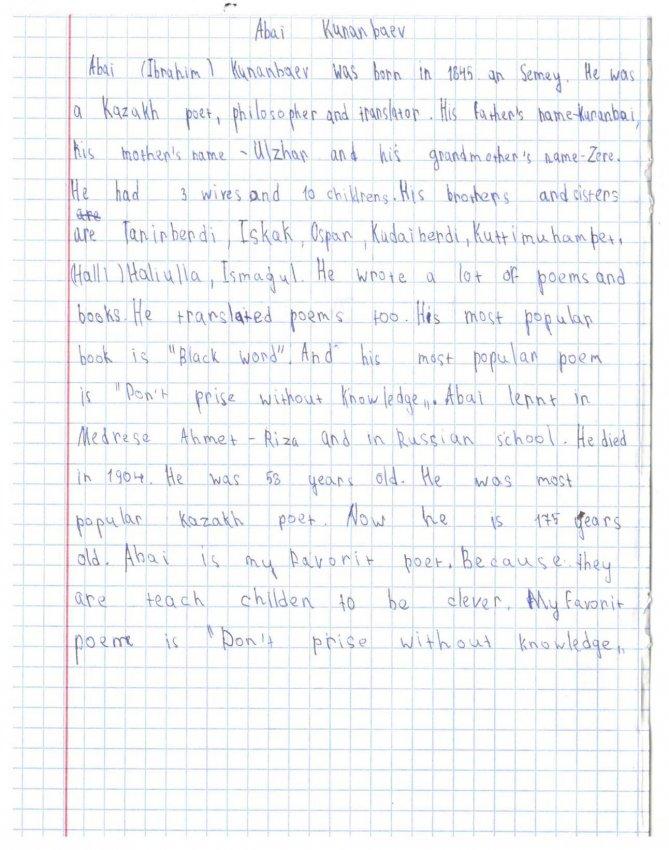 Abai Kunanbaev
Abai (Ibrahim) Kunanbaev was born in 1845 an Semey. He was
a Kazakh poet, philosopher and translator. His father's name-Kunanbai,
his mother's name - Ulzhan and his grandmother's name-Zere.
He had 3 wives and 10 childrens. His brothers and sisters
are
are Tanirberdi, Iskak, Ospan, Kudaiberdi, Kuttimuhampet,
(Halli) Haliulla, Ismagul. He wrote a lot of poems and
books. He translated poems too. His most popular
book is "Black word". And his most popular poem
is "Don't prise without knowledge„. Abai lernt in
Medrese Ahmet - Riza and in Russian school. He died
in 1904. He was 58 years old. He was most
popular Kazakh poet. Now he is 175 years
old. Abai is my favorit poet. Because they
are teach childen to be clever. My favorit
poem is "Don't prise without knowledge„